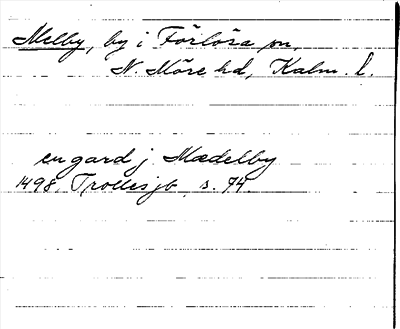 Melby, by i Förlösa sn,
N. Möre hd, Kalm. l.
en gard j Mædelby
1498. Trollesjb s. 74.